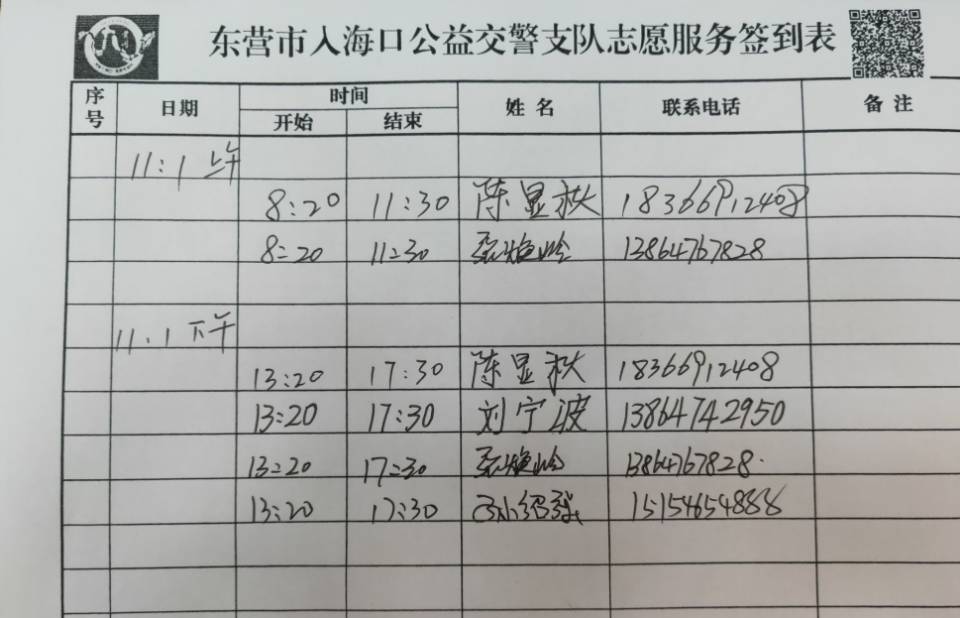 东营市入海口公益交警支队志愿服务签到表
序号 日期 时间 姓名 联系电话 备注
开始 结束
11:1 上午
8:20 11:30 陈显秋 18366912408
8:20 11:30 13864767828
11.1 下午
13:20 17:30 陈显秋 18366912408
13:20 17:30 刘宁波 13864742950
13:20 17:30 13864767828.
13:20 17:30 15154654888